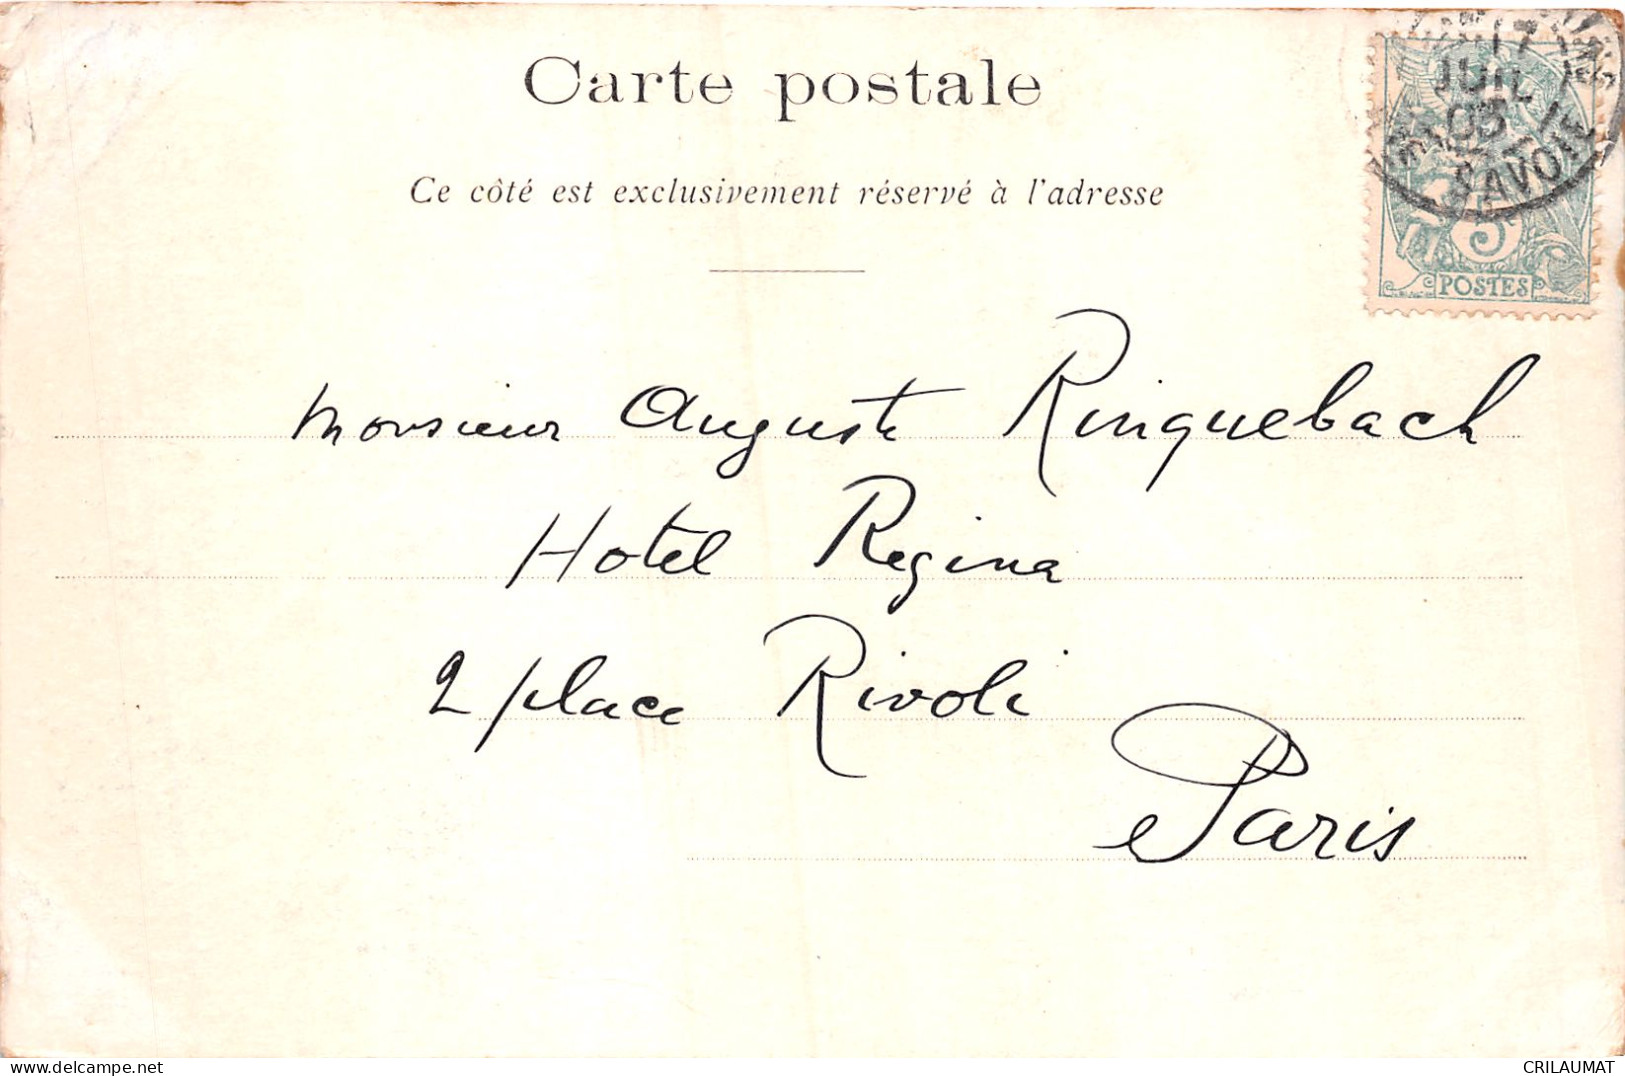 Carte postale
Ce côté est exclusivement réservé à l'adresse
17
JUIL
03
SAVOIE
5
POSTES
Monsieur Auguste Ringuebach
Hotel Regina
2 place Rivoli
Paris
CRILAUMAT